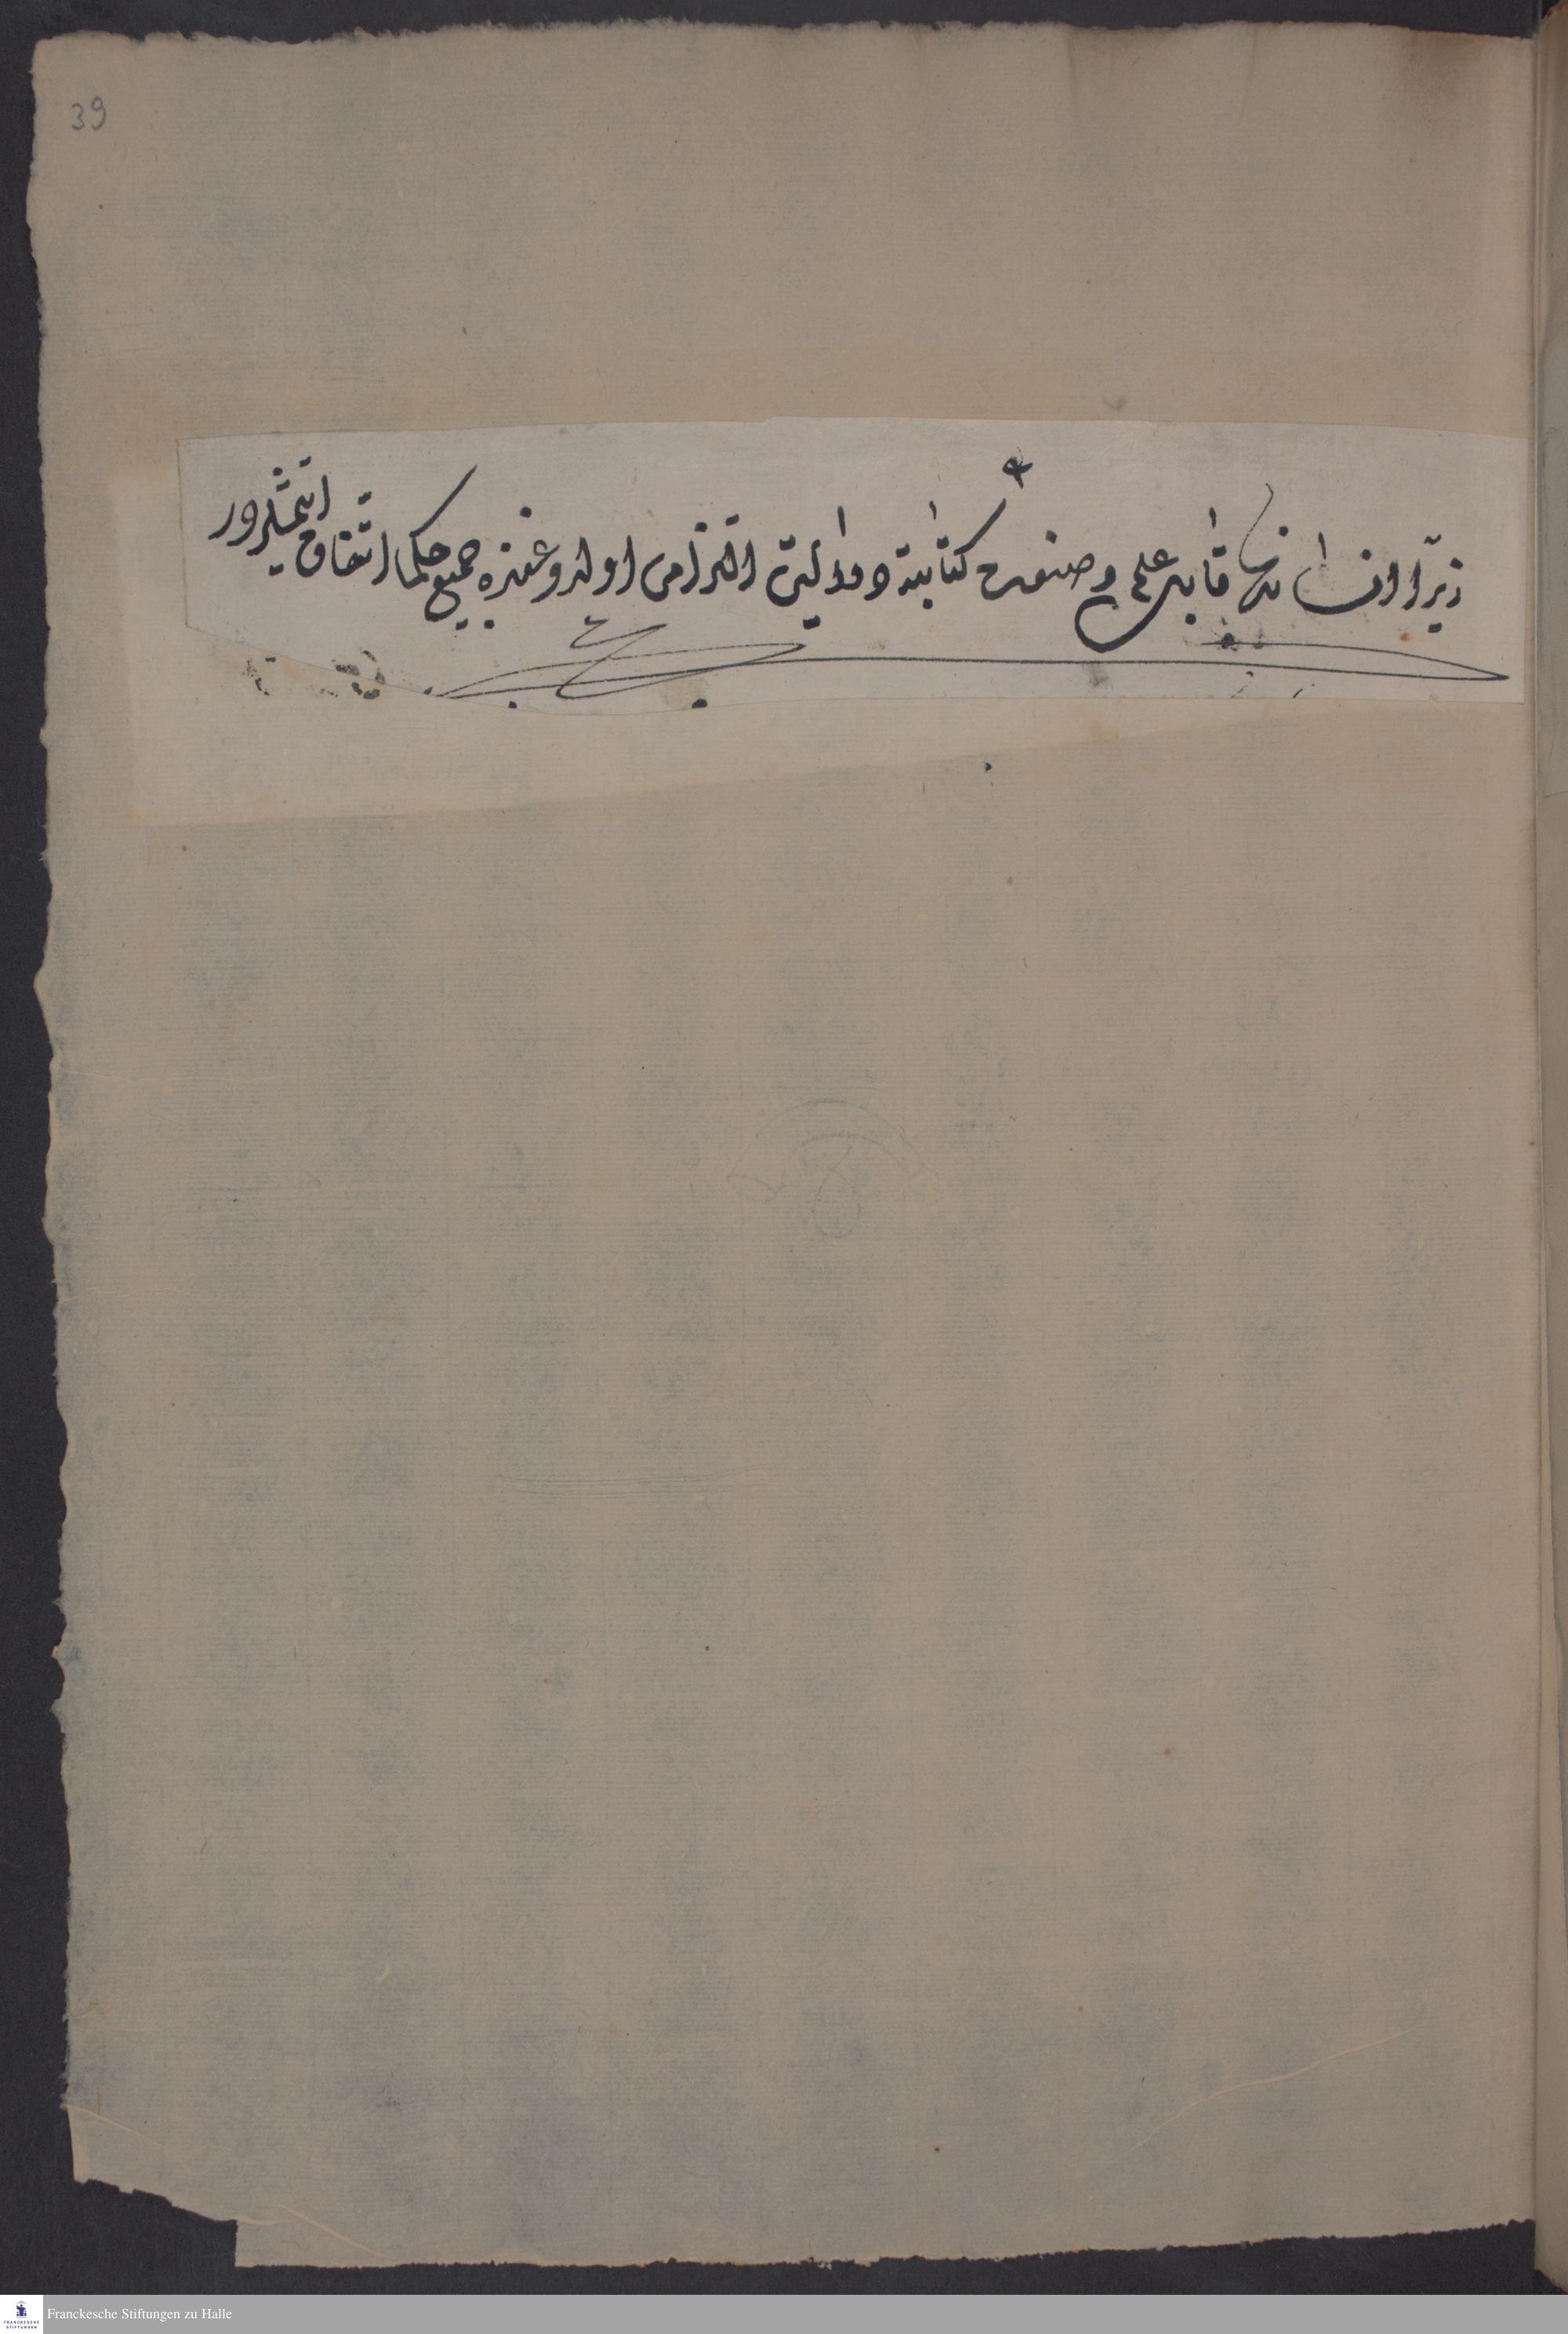 39
زيرا انسانك قابل علم وصنعت كتابته ودلالت التزامى اولدوغنده جميع حكما اتفاق اتمشلردور
Franckesche Stiftungen zu Halle